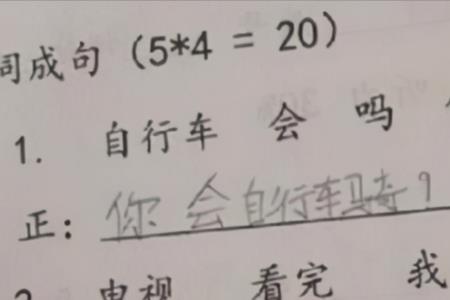 词成句（5*4 = 20）
1. 自行车 会 吗
正：你 会 自行车骑？
电视 看完 我